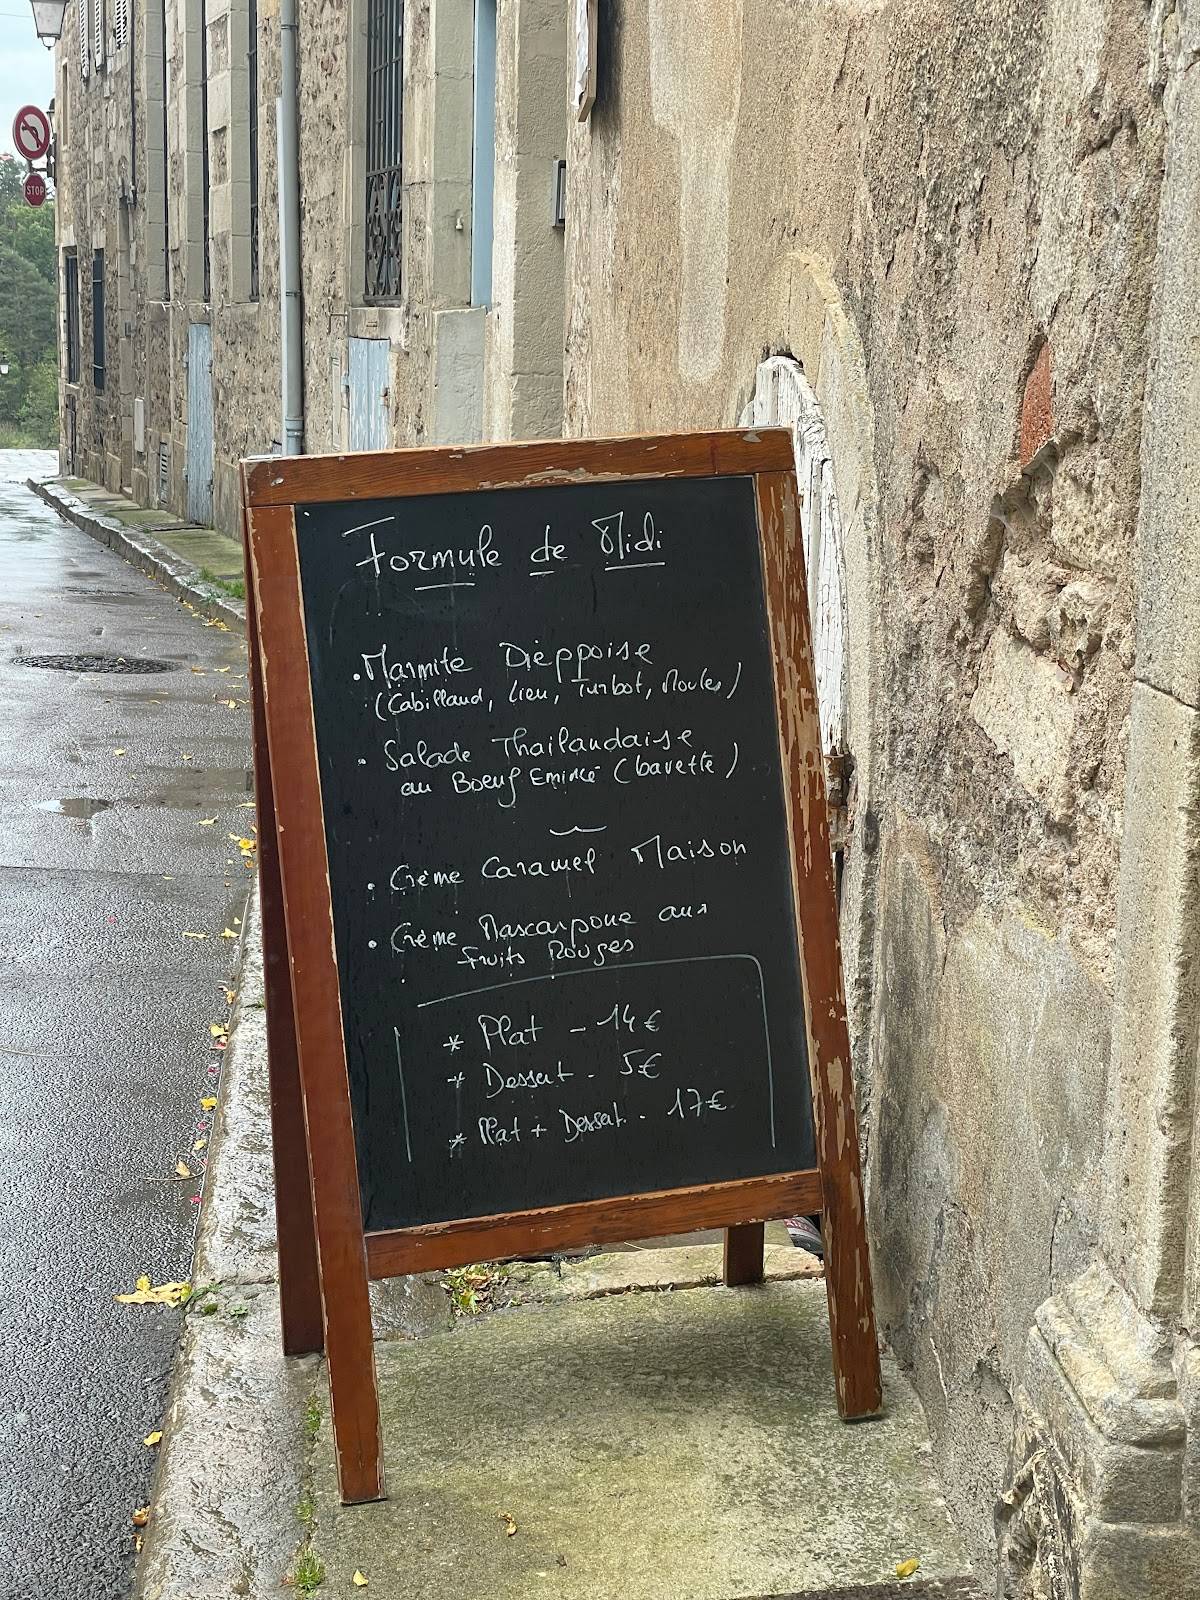 STOP
Formule de Midi
. Marmite Dièppoise
(Cabillaud, Lieu, Turbot, Moules)
. Salade Thaïlandaise
au Boeuf Emincé (bavette)
. Crème Caramel Maison
. Crème Mascarpone aux
fruits Rouges
* Plat - 14€
* Dessert - 5€
* Plat + Dessert - 17€